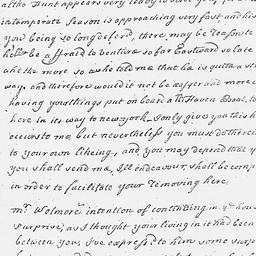 altho Hunt appears very ready to
intemperate Season is approaching very fast, and his
you being so long defer'd, there may be reason to
he'll be affraid to venture so far Eastward so late
and the more so as he told me that he is quite a str
way, and therefore would it not be safer and more c
having your things put on board a N: Haven Boat, to
here in its way to newyork. I only give you this h
occurs to me, but nevertheless you must do therein
to your own likeing, and you may depend that y
you shall send me, I'll endeavour, shall be comp
in order to facilitate your removing here.
mr. Welmore's intention of continuing in yr hous
Surprize; as I thought your living in it had been
between you, I've express'd to him some surp